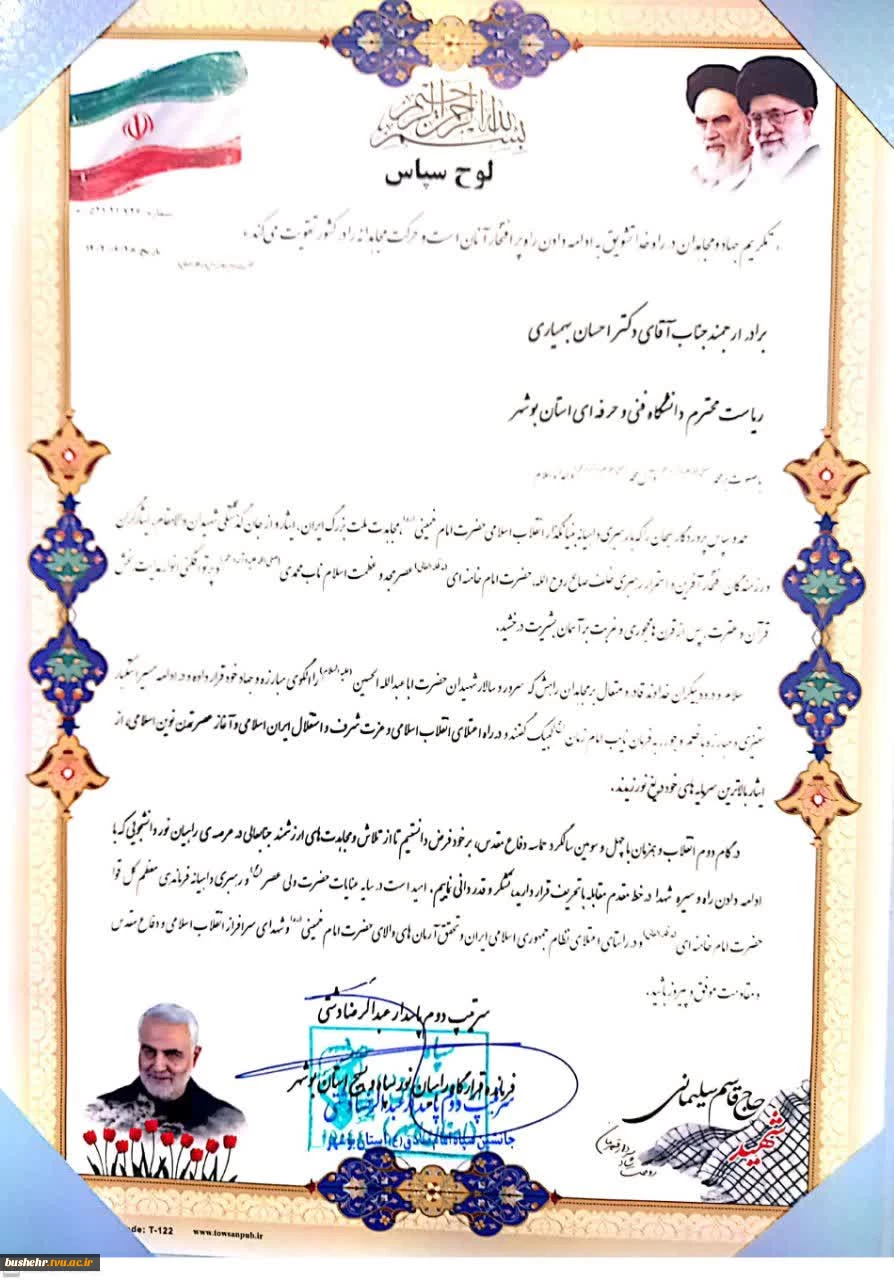 بسم الله الرحمن الرحیم
لوح سپاس
« تکریم جهاد و مجاهدان در راه خدا تشویق به ادامه دادن راه پر افتخار آنان است و حرکت مجاهدانه را در کشور تقویت می‌کند »
برادر ارجمند جناب آقای دکتر احسان بهمیاری
ریاست محترم دانشگاه فنی و حرفه ای استان بوشهر
با صلوات بر محمد و آل محمد
حمد و سپاس پروردگار سبحان را که با رهبری داهیانه بنیانگذار انقلاب اسلامی حضرت امام خمینی (ره)، مجاهدت ملت بزرگ ایران، ایثار و از جان گذشتگی شهیدان والامقام، ایثارگران
و رزمندگان افتخار آفرین و استمرار رهبری خلف صالح روح الله، حضرت امام خامنه ای (مدظله العالی) عصر مجد و عظمت اسلام ناب محمدی و پرتو افکنی انوار هدایت بخش
قرآن و عترت، پس از قرن ها مهجوری و غربت بر آسمان بشریت درخشید.
سلام و درود بیکران خداوند قادر و متعال بر مجاهدان راهش که سرور و سالار شهیدان حضرت ابا عبدالله الحسین (علیه السلام) را الگوی مبارزه و جهاد خود قرار داده و در ادامه مسیر استکبار
ستیزی و مبارزه با ظلم و جور، به فرمان نایب امام زمان لبیک گفتند و در راه اعتلای انقلاب اسلامی و عزت شرف و استقلال ایران اسلامی و آغاز عصر تمدن نوین اسلامی، از
ایثار بالاترین سرمایه های خود دریغ نورزیدند.
در گام دوم انقلاب و همزمان با چهل و سومین سالگرد حماسه دفاع مقدس، بر خود فرض دانستیم تا از تلاش و مجاهدت‌های ارزشمند جنابعالی در عرصه ی راهیان نور دانشجویی که با
ادامه دادن راه و سیره شهدا در خط مقدم مقابله با تحریف قرار دارید، تشکر و قدردانی نماییم. امید است در سایه عنایات حضرت ولی عصر و رهبری داهیانه فرماندهی معظم کل قوا
حضرت امام خامنه ای (مدظله العالی) و در راستای اعتلای نظام جمهوری اسلامی ایران و تحقق آرمان های والای حضرت امام خمینی (ره) و شهدای سرافراز انقلاب اسلامی و دفاع مقدس
و مقاومت موفق و پیروز باشید.
سرتیپ دوم پاسدار عبدالرضا دشتی
فرمانده قرارگاه راهیان نور سپاه و بسیج استان بوشهر
سرتیپ دوم پاسدار عبدالرضا دشتی
جانشین سپاه امام صادق (ع) استان بوشهر
حاج قاسم سلیمانی
شهید
T-122
www.towsanpub.ir
bushehr.tvu.ac.ir